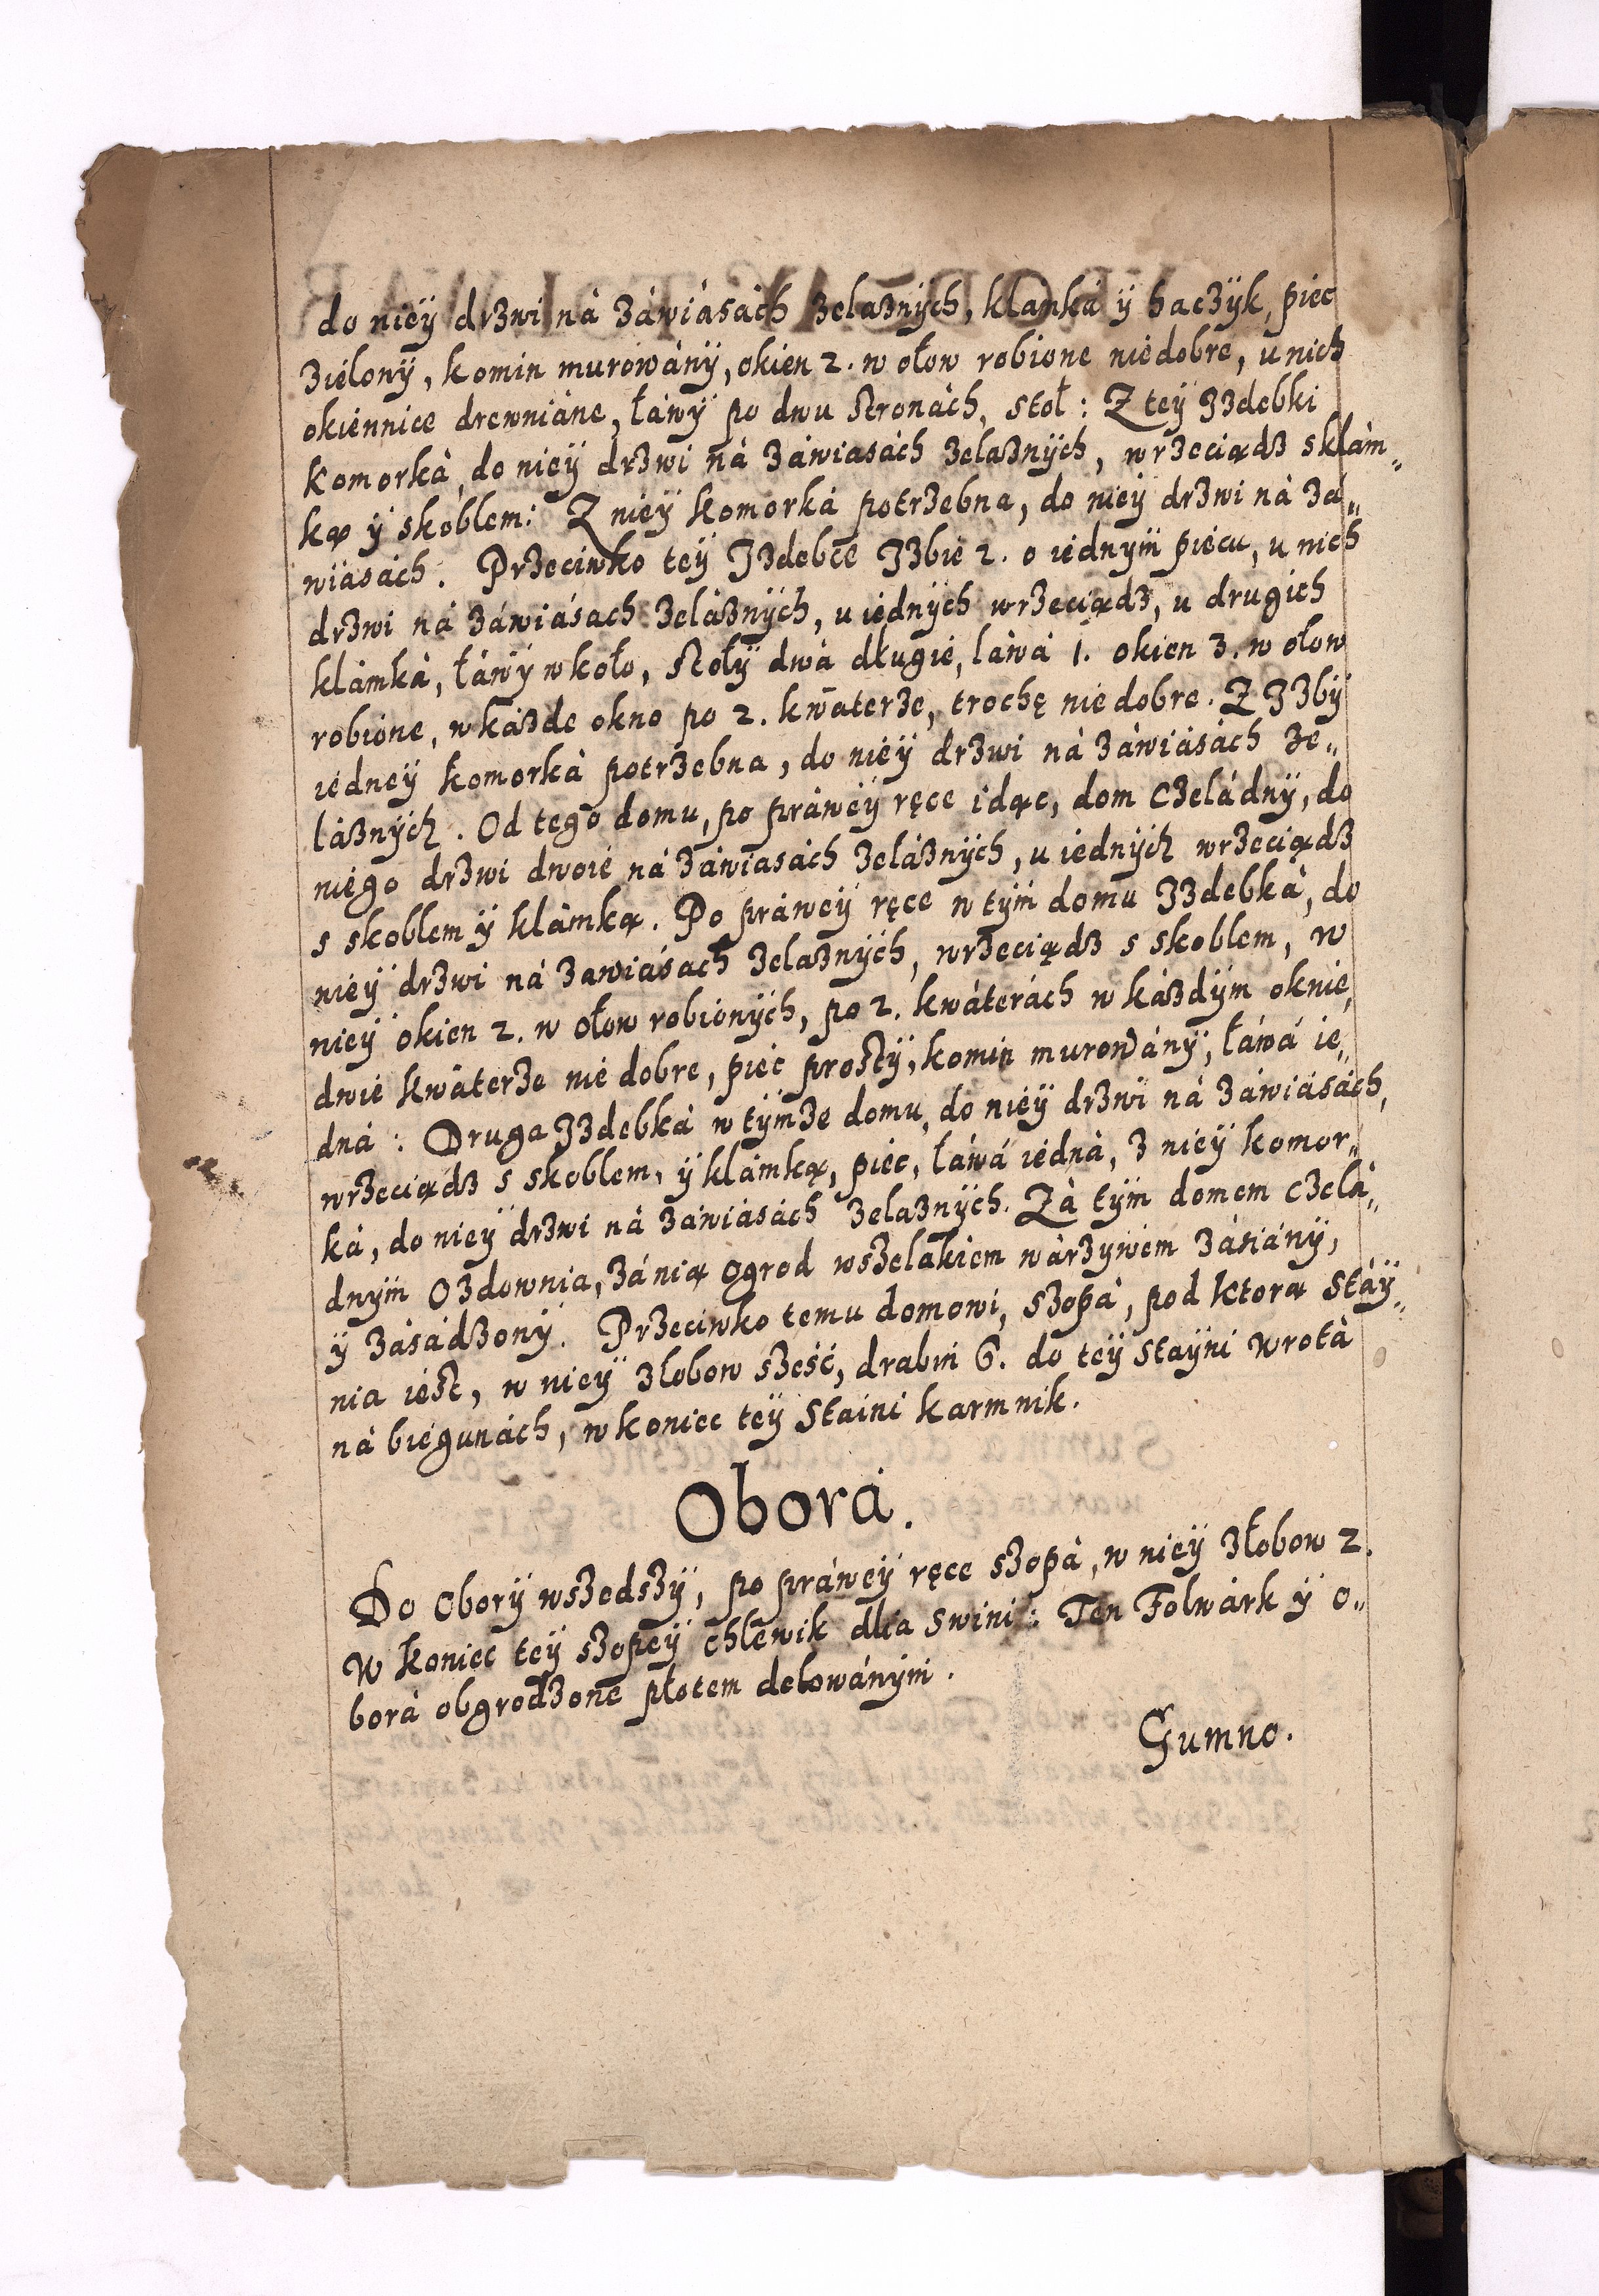 do nieÿ drzwi nà záwiásách zelaznÿch, klamká ÿ haczÿk, piec
zielonÿ, komin murowánÿ, okien 2. w ołow robione niedobre, u nich
okiennice drewniáne, łáwÿ po dwu stronách, stoł: Z teÿ Izdebki
komorká, do nieÿ drzwi ná záwiasách zelaznÿch, wrzeciądz sklám„
ką ÿ skoblem: Z nieÿ komorká potrzebna, do nieÿ drzwi ná za„
wiasách. Przeciwko teÿ Izdebce Izbie 2. o iednÿm piecu, u nich
drzwi ná záwiásach zeláznÿch, u iednÿch wrzeciądz, u drugich
klámká, łáwÿ wkoło, stołÿ dwá długie, láwá 1. okien 3. w ołow
robione, w kázde okno po 2. kwaterze, trochę nie dobre. Z Izbÿ
iedneÿ komorká potrzebna, do nieÿ drzwi ná záwiásách ze„
láznÿch. Od tego domu, po práweÿ ręce idąc, dom czeládnÿ, do
niego drzwi dwoie ná záwiasách zeláznÿch, u iednÿch wrzeciądz
s skoblem ÿ klámką. Po práweÿ ręce w tÿm domu Izdebká, do
nieÿ drzwi ná zawiásach zelaznÿch, wrzeciądz s skoblem, w
nieÿ okien 2. w ołow robionÿch, po 2. kwáterách w káżdÿm oknie,
dwie kwáterze nie dobre, piec prostÿ, komin murowánÿ, łáwá ie„
dná: Druga Izdebká w tÿmze domu, do nieÿ drzwi ná záwiásách,
wrzeciądz s skoblem, ÿ klámką, piec, łáwá iedná, z nieÿ komor„
ká, do nieÿ drzwi ná záwiasách zelaznÿch. Zá tÿm domem czelá„
dnÿm Ozdownia, zá nią Ogrod wszelakiem wárzywem zásiánÿ,
ÿ zásádzonÿ. Przeciwko temu domowi, szopá, pod ktorą Stáÿ„
nia iest, w nieÿ złobow sześć, drabin 6. do teÿ Staÿni wrotá
ná biegunách, w koniec teÿ Staini karmnik.
Oborá.
Do Oborÿ wszedszÿ, po práweÿ ręce szopá, w nieÿ złobow 2.
W koniec teÿ szopeÿ chlewik dla swini: Ten Folwárk ÿ o„
borá obgrodzone płotem delowánÿm.
Gumno.